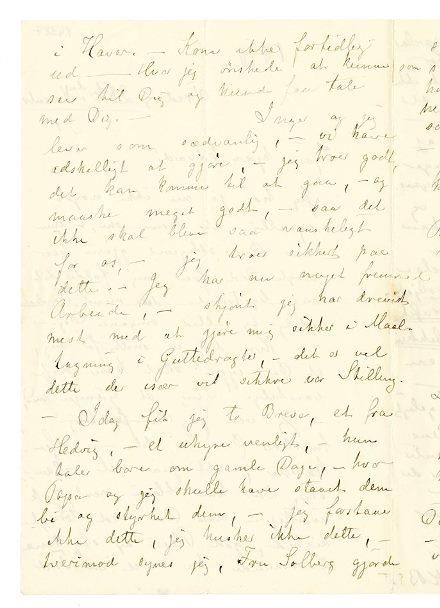 i Haven. — Kom ikke for tidlig
ud — Hvor jeg ønskede at kunne
see til Dig og kunne faa tale
med Dig. — Inga og jeg
lever som sædvanlig, — vi have
adskilligt at gjøre, — jeg troer godt,
det kan komme til at gaa, — og
maaske meget godt, — saa det
ikke skal blive saa vanskeligt
for os, — jeg troer sikkert paa
dette. — Jeg har nu meget fremmed
Arbeide, — skjønt jeg har drevet
mest med at gjøre mig sikker i Maal-
tagning i Guttedragter, — det er vel
dette der især vil sikkre vor Stilling.
— Idag fik jeg to Breve, et fra
Hedvig, — et uhyre venligt, — hun
taler bare om gamle Dage, — hvor
og jeg skulle have staaet dem
bi og styrket dem, — jeg forstaar
ikke dette, jeg husker ikke dette, —
tverimod synes jeg, Fru Solberg gjorde